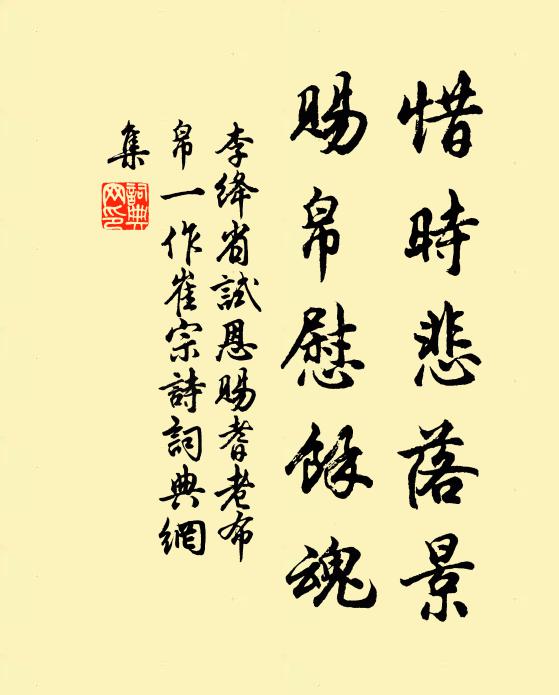 惜時悲落景
賜帛慰餘魂
李絳省試恩賜耆老布
帛一作崔宗詩詞典網
集
詞典
网印